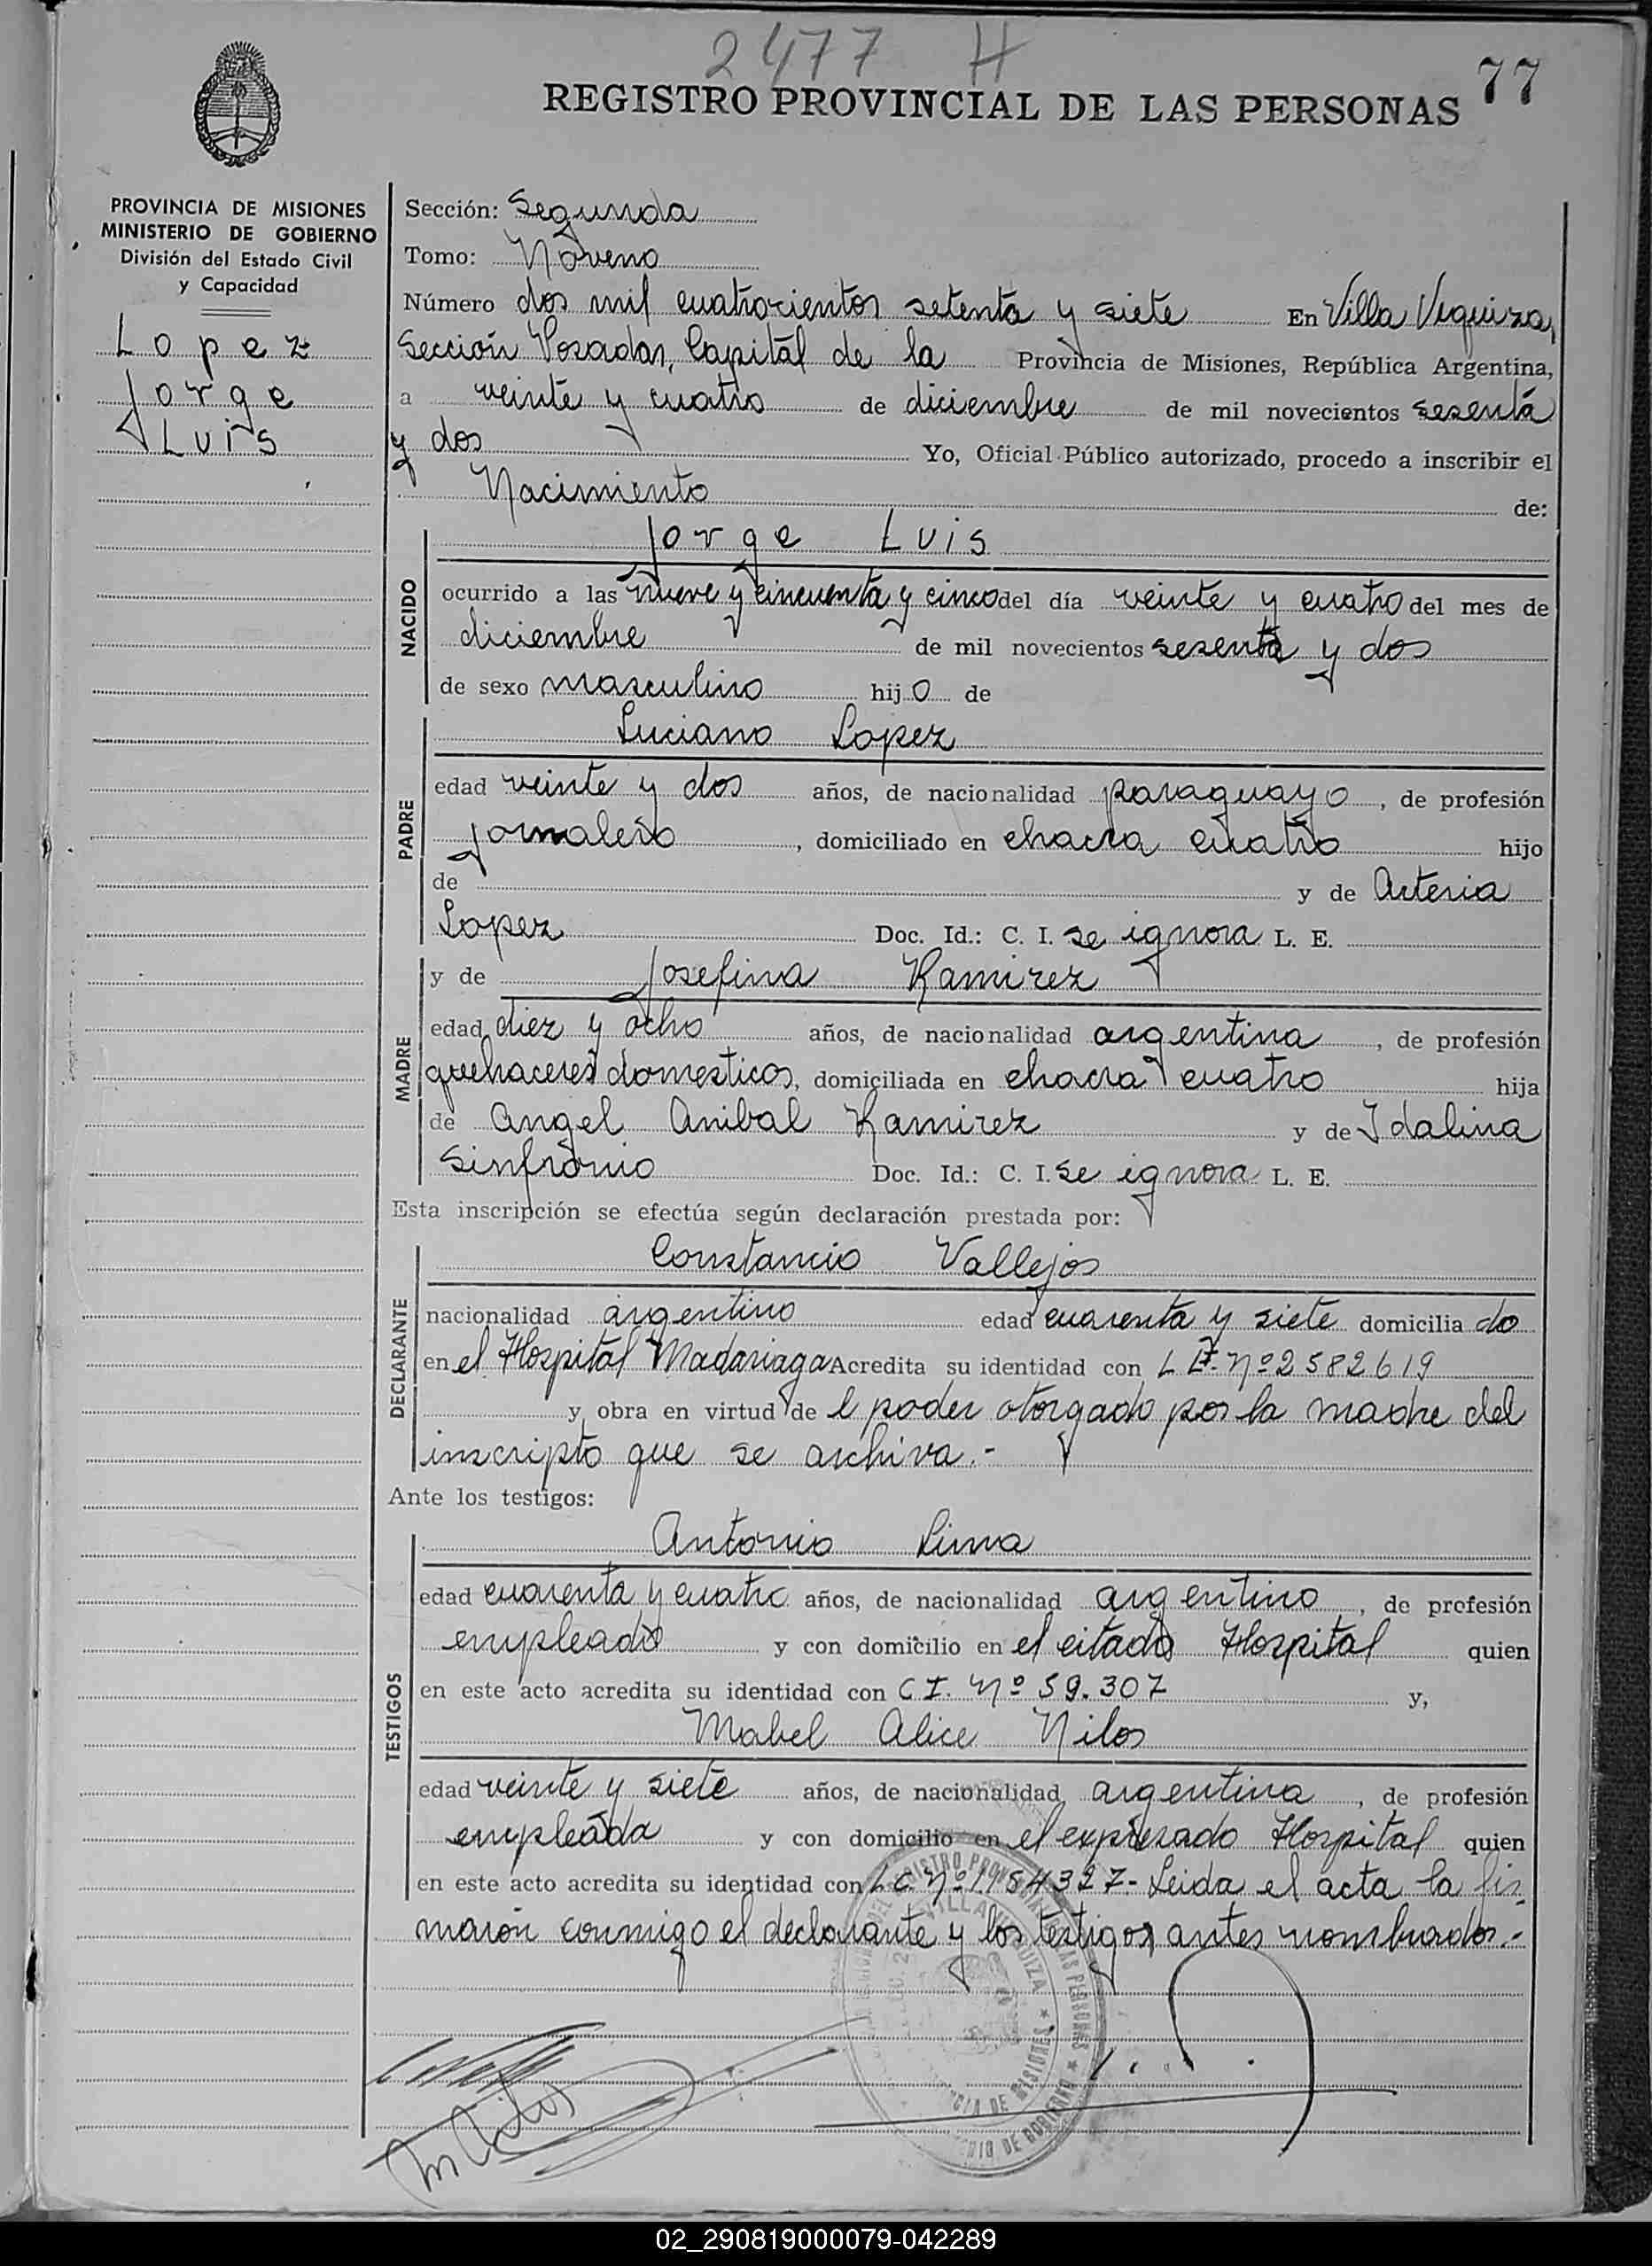 2477 H
77
REGISTRO PROVINCIAL DE LAS PERSONAS
PROVINCIA DE MISIONES
MINISTERIO DE GOBIERNO
División del Estado Civil
y Capacidad
Lopez
Jorge
Luis
Sección: Segunda
Tomo: Noveno
Número dos mil cuatrocientos setenta y siete En Villa Urquiza,
Sección Posadas, Capital de la Provincia de Misiones, República Argentina,
a veinte y cuatro de diciembre de mil novecientos sesenta
y dos Yo, Oficial Público autorizado, procedo a inscribir el
Nacimiento de:
NACIDO
Jorge Luis
ocurrido a las nueve y cincuenta y cinco del día veinte y cuatro del mes de
diciembre de mil novecientos sesenta y dos
de sexo masculino hijo de
PADRE
Luciano Lopez
edad veinte y dos años, de nacionalidad paraguayo, de profesión
jornalero, domiciliado en chacra cuatro hijo
de y de Arteria
Lopez Doc. Id.: C. I. se ignora L. E.
MADRE
y de Josefina Ramirez
edad diez y ocho años, de nacionalidad argentina, de profesión
quehaceres domesticos, domiciliada en chacra cuatro hija
de Angel Anibal Ramirez y de Idalina
Sinfronio Doc. Id.: C. I. se ignora L. E.
Esta inscripción se efectúa según declaración prestada por:
DECLARANTE
Constancio Vallejos
nacionalidad argentino edad cuarenta y siete domiciliado
en el Hospital Madariaga Acredita su identidad con L E. Nº 2582619
y obra en virtud de l poder otorgado por la madre del
inscripto que se archiva.-
Ante los testigos:
TESTIGOS
Antonio Lima
edad cuarenta y cuatro años, de nacionalidad argentino, de profesión
empleado y con domicilio en el citado Hospital quien
en este acto acredita su identidad con C I. Nº 59.307 y,
Mabel Alice Nilos
edad veinte y siete años, de nacionalidad argentina, de profesión
empleada y con domicilio en el expresado Hospital quien
en este acto acredita su identidad con L.C. Nº 1184327.- Leida el acta la fir-
maron conmigo el declarante y los testigos antes nombrados.-
02_290819000079-042289